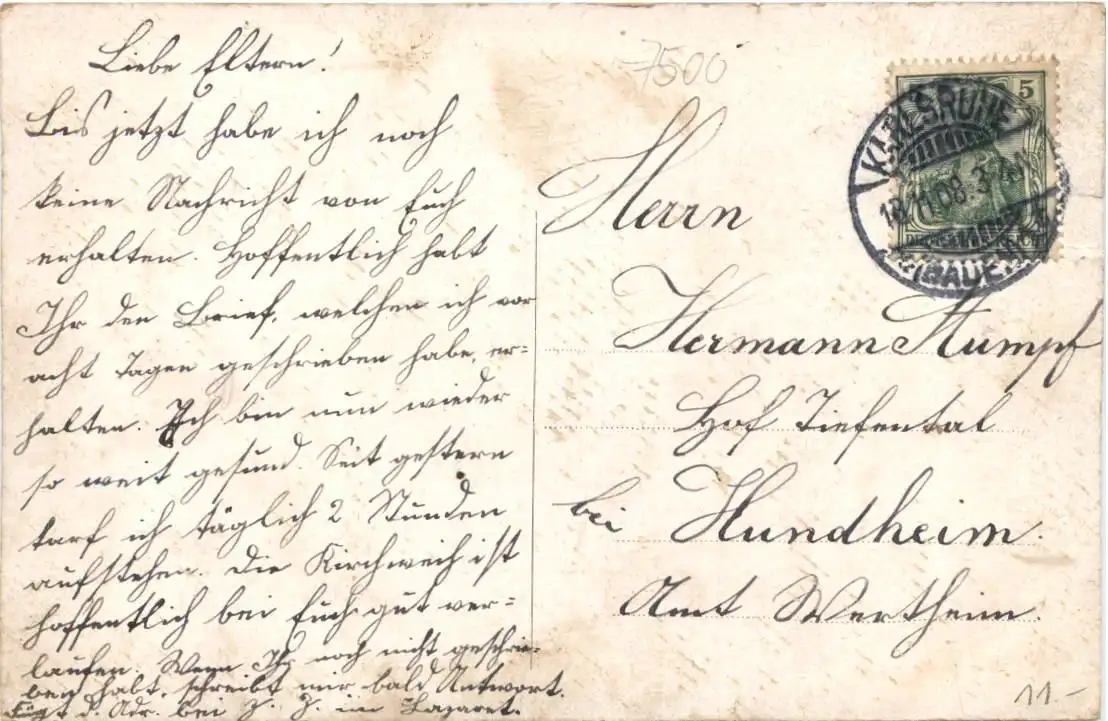 Liebe Eltern!
Bis jetzt habe ich noch
keine Nachricht von Euch
erhalten. Hoffentlich habt
Ihr den Brief, welchen ich vor
acht Tagen geschrieben habe, er=
halten. Ich bin nun wieder
so weit gesund. Seit gestern
darf ich täglich 2 Stunden
aufstehen. Die Kirchweih ist
hoffentlich bei Euch gut ver=
laufen. Wenn Ihr noch nicht geschrie=
ben habt, schreibt mir bald Antwort.
d. Adr. bei z. Z. im Lazaret.
7500
5
KARLSRUHE
18.11.08. 3
(BADEN)
Herrn
Hermann Stumpf
Hof Tiefental
bei Hundheim.
Amt Wertheim.
11.-